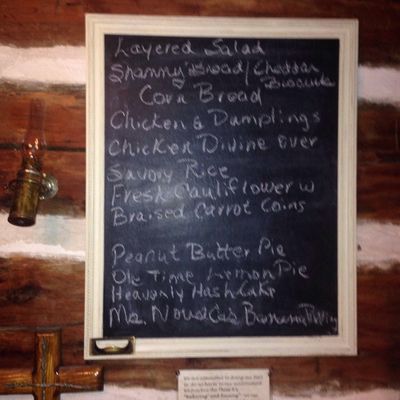 Layered Salad
Shammy Bread / Cheddar
Broccoli
Corn Bread
Chicken & Damplings
Chicken Divine over
Savory Rice
Fresh Cauliflower w
Braised Carrot Coins
Peanut Butter Pie
Ole Time Lemon Pie
Heavenly Hash Cake
Banana